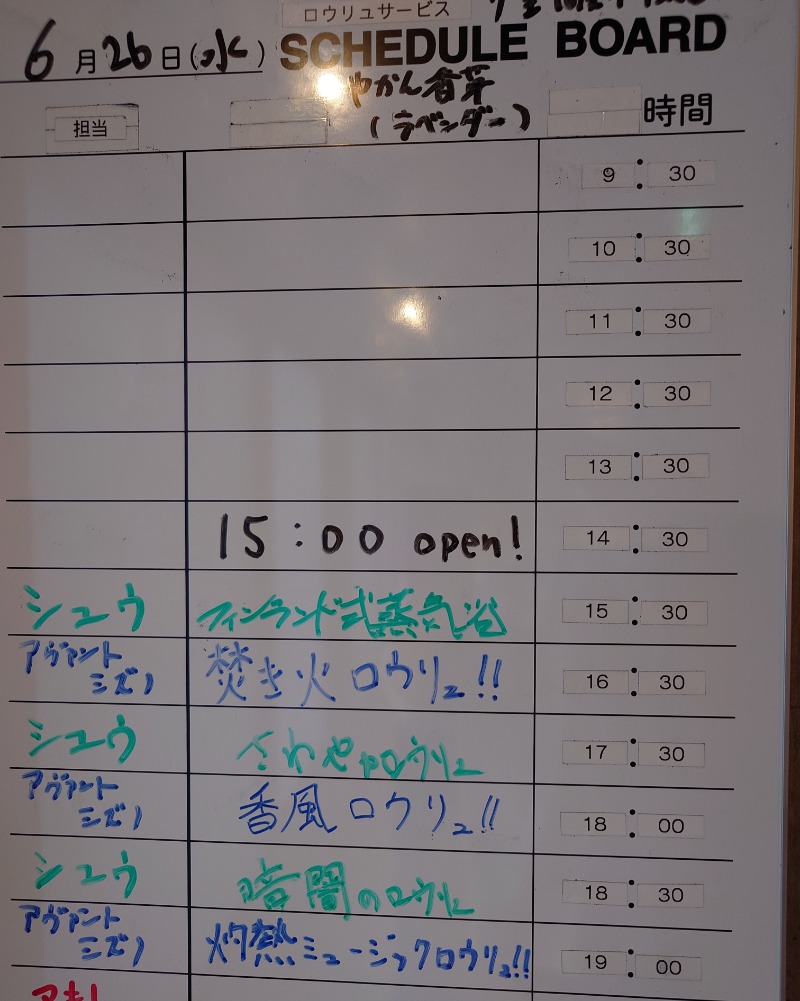 ロウリュサービス
6月26日(水) SCHEDULE BOARD
やかん香芽
(ラベンダー)
担当 時間
9:30
10:30
11:30
12:30
13:30
15:00 open! 14:30
シュウ フィンランド式蒸気浴 15:30
アヴァント
ミズノ 焚き火ロウリュ!! 16:30
シュウ さわやかロウリュ 17:30
アヴァント
ミズノ 香風ロウリュ!! 18:00
シュウ 暗闇のロウリュ 18:30
アヴァント
ミズノ 灼熱ミュージックロウリュ!! 19:00